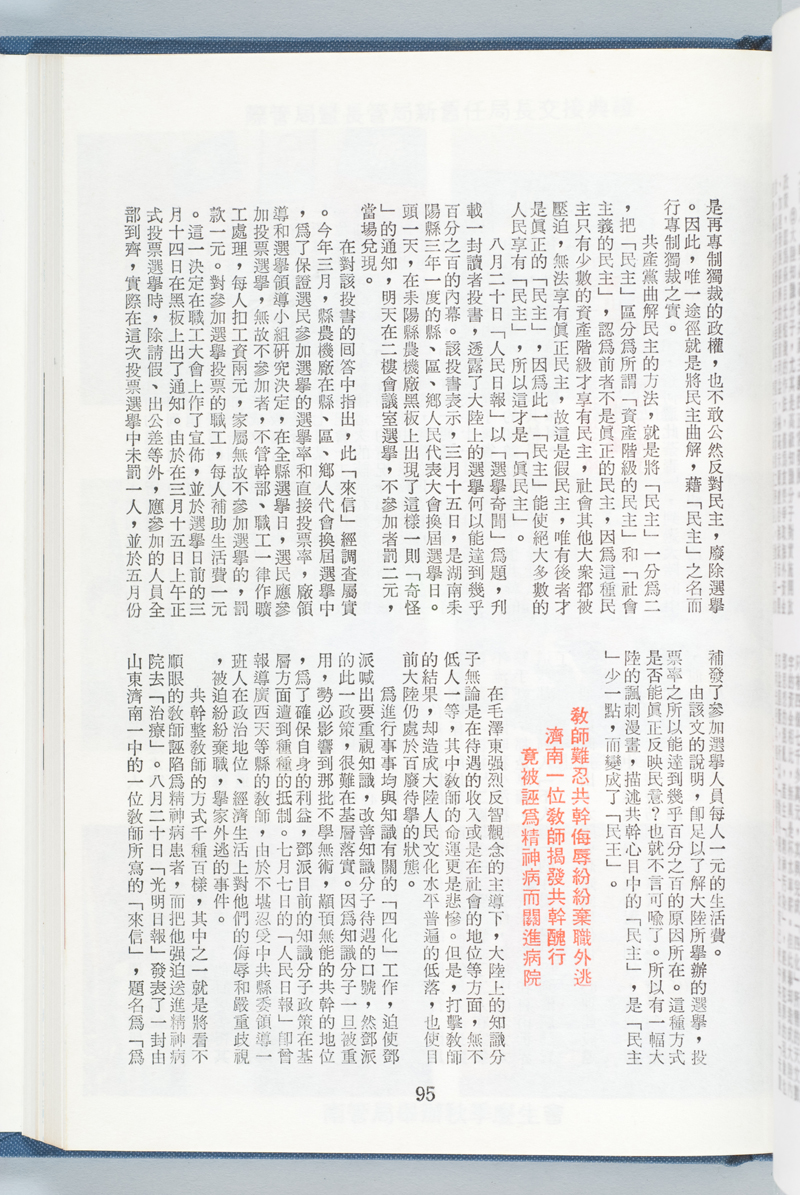 是再專制獨裁的政權，也不敢公然反對民主，廢除選舉
。因此，唯一途徑就是將民主曲解，藉「民主」之名而
行專制獨裁之實。
共產黨曲解民主的方法，就是將「民主」一分為二
，把「民主」區分為所謂「資產階級的民主」和「社會
主義的民主」，認為前者不是眞正的民主，因為這種民
主只有少數的資產階級才享有民主，社會其他大衆都被
壓迫，無法享有眞正民主，故這是假民主，唯有後者才
是眞正的「民主」，因為此一「民主」能使絕大多數的
人民享有「民主」，所以這才是「眞民主」。
八月二十日「人民日報」以「選舉奇聞」為題，刋
載一封讀者投書，透露了大陸上的選舉何以能達到幾乎
百分之百的內幕。該投書表示，三月十五日，是湖南耒
陽縣三年一度的縣、區、鄉人民代表大會換屆選舉日。
頭一天，在耒陽縣農機廠黑板上出現了這樣一則「奇怪
」的通知，明天在二樓會議室選舉，不參加者罰二元，
當場兌現。
在對該投書的囘答中指出，此「來信」經調查屬實
。今年三月，縣農機廠在縣、區、鄉人代會換屆選舉中
，為了保證選民參加選舉的選舉率和直接投票率，廠領
導和選舉領導小組研究決定，在全縣選舉日，選民應參
加投票選舉，無故不參加者，不管幹部、職工一律作曠
工處理，每人扣工資兩元，家屬無故不參加選舉的，罰
款一元。對參加選舉投票的職工，每人補助生活費一元
。這一決定在職工大會上作了宣佈，並於選舉日前的三
月十四日在黑板上出了通知。由於在三月十五日上午正
式投票選舉時，除請假、出公差等外，應參加的人員全
部到齊，實際在這次投票選舉中未罰一人，並於五月份
補發了參加選舉人員每人一元的生活費。
由該文的說明，卽足以了解大陸所舉辦的選舉，投
票率之所以能達到幾乎百分之百的原因所在。這種方式
是否能眞正反映民意？也就不言可喩了。所以有一幅大
陸的諷刺漫畫，描述共幹心目中的「民主」，是「民主
」少一點，而變成了「民王」。
敎師難忍共幹侮辱紛紛棄職外逃
濟南一位敎師揭發共幹醜行
竟被誣為精神病而關進病院
在毛澤東强烈反智觀念的主導下，大陸上的知識分
子無論是在待遇的收入或是在社會的地位等方面，無不
低人一等，其中敎師的命運更是悲慘。但是，打擊敎師
的結果，却造成大陸人民文化水平普遍的低落，也使目
前大陸仍處於百廢待舉的狀態。
為進行事事均與知識有關的「四化」工作，迫使鄧
派喊出要重視知識，改善知識分子待遇的口號，然鄧派
的此一政策，很難在基層落實。因為知識分子一旦被重
用，勢必影響到那批不學無術，顢頇無能的共幹的地位
，為了確保自身的利益，鄧派目前的知識分子政策在基
層方面遭到種種的抵制。七月七日的「人民日報」卽曾
報導廣西天等縣的敎師，由於不堪忍受中共縣委領導一
班人在政治地位、經濟生活上對他們的侮辱和嚴重歧視
，被迫紛紛棄職，擧家外逃的事件。
共幹整敎師的方式千種百樣，其中之一就是將看不
順眼的敎師誣陷為精神病患者，而把他强迫送進精神病
院去「治療」。八月二十日「光明日報」發表了一封由
山東濟南一中的一位敎師所寫的「來信」，題名為「為
95